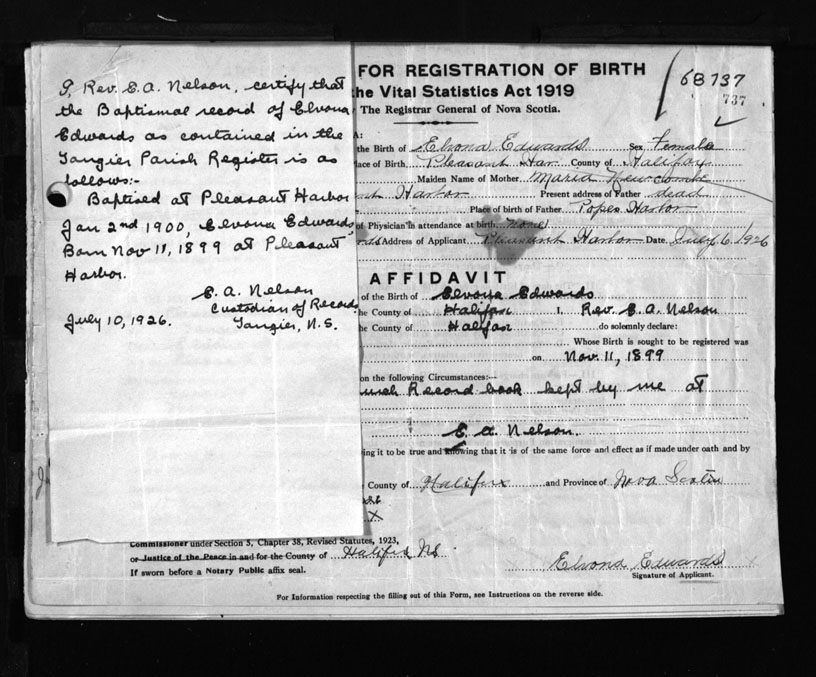 I, Rev. E. A. Nelson, certify that
the Baptismal record of Elvona
Edwards as contained in the
Tangier Parish Register is as
follows:-
Baptised at Pleasant Harbor
Jan 2nd 1900, Elvona Edwards
Born Nov 11, 1899 at Pleasant
Harbor.
E. A. Nelson
Custodian of Records
July 10, 1926. Tangier, N.S.
FOR REGISTRATION OF BIRTH
the Vital Statistics Act 1919
The Registrar General of Nova Scotia.
68737
737
the Birth of Elvona Edwards Sex Female
Place of Birth Pleasant Har County of Halifax
Maiden Name of Mother Maria Newcombe
Harbor Present address of Father dead
Place of birth of Father Popes Harbor
of Physician in attendance at birth none
Address of Applicant Pleasant Harbor Date July 6 1926
AFFIDAVIT
of the Birth of Elvona Edwards
the County of Halifax I, Rev. E. A. Nelson
the County of Halifax do solemnly declare:
Whose Birth is sought to be registered was
on Nov. 11, 1899
on the following Circumstances:—
Church Record book kept by me at
E. A. Nelson.
it to be true and knowing that it is of the same force and effect as if made under oath and by
County of Halifax and Province of Nova Scotia
X
Commissioner under Section 5, Chapter 38, Revised Statutes, 1923,
or Justice of the Peace in and for the County of Halifax NS.
If sworn before a Notary Public affix seal.
Elvona Edwards
Signature of Applicant.
For Information respecting the filling out of this Form, see Instructions on the reverse side.